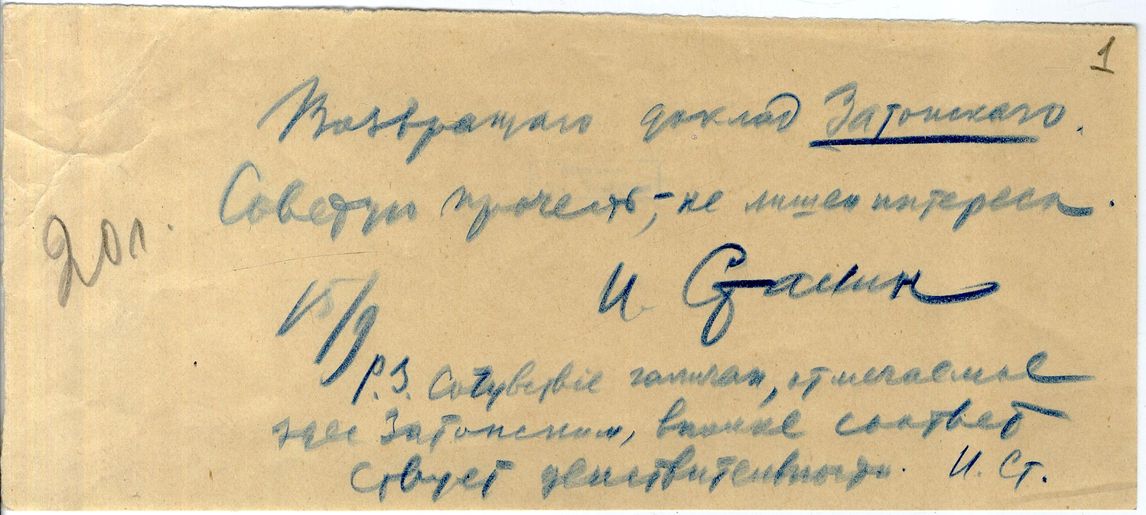 1
Возвращаю доклад Затонского.
Советую прочесть, – не лишен интереса.
20л.
И. Сталин
15/9
P.S. Сочувствие галичан, отмечаемое
здес Затонским, вполне соответ
ствует действительности. И. Ст.